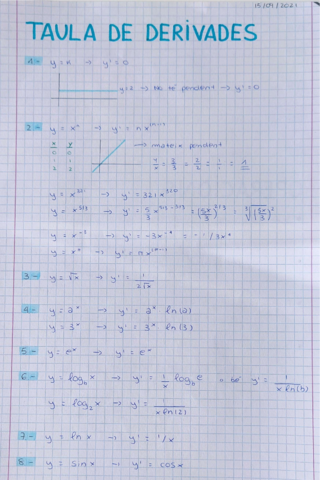 15/09/2021
TAULA DE DERIVADES
1- y = n → y' = 0
y=2 → No té pendent → y' = 0
2- y = xⁿ → y' = n xⁿ⁻¹
x y
0 0
1 1
2 2
→ mateix pendent
y = x³²¹ → y' = 321 x³²⁰
y = x⁻³ → y' = -3x⁻⁴
y = xⁿ → y' = n xⁿ⁻¹
3- y = √x → y' = 1/(2√x)
4- y = 2ˣ → y' = 2ˣ ln(2)
y = 3ˣ → y' = 3ˣ ln(3)
5- y = eˣ → y' = eˣ
6- y = log_b x → y' = 1/x log_b e o bé y' = 1/(x ln(b))
y = log₂ x → y' = 1/(x ln(2))
7- y = ln x → y' = 1/x
8- y = sin x → y' = cos x